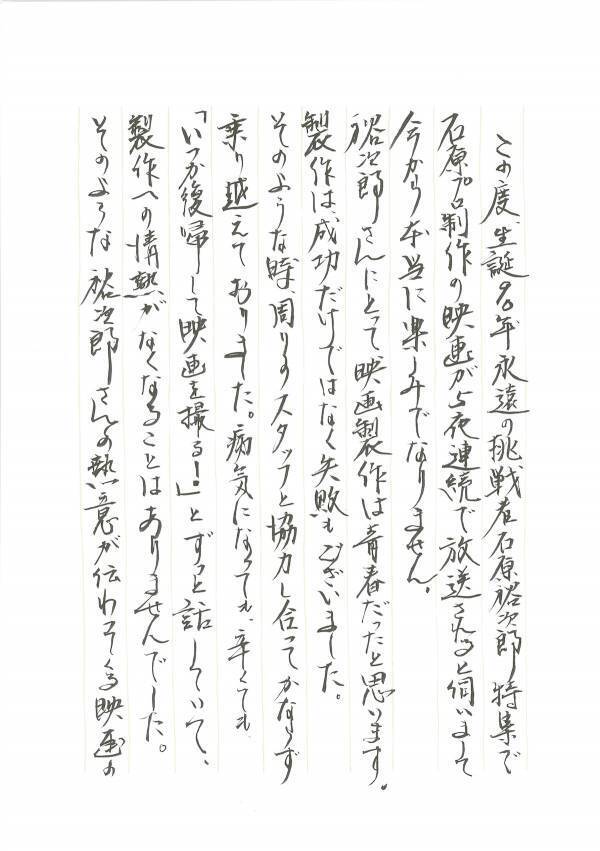 この度、生誕90年永遠の挑戦者石原裕次郎特集で
石原プロ制作の映画が5夜連続で放送されると伺いまして
今から本当に楽しみでなりません。
裕次郎さんにとって映画製作は青春だったと思います。
製作は、成功だけではなく失敗もございました。
そのような時、周りのスタッフと協力し合ってかならず
乗り越えておりました。病気になっても、辛くても
「いつか復帰して映画を撮る!」とずっと話していて、
製作への情熱がなくなることはありませんでした。
そのような裕次郎さんの熱意が伝わってくる映画の